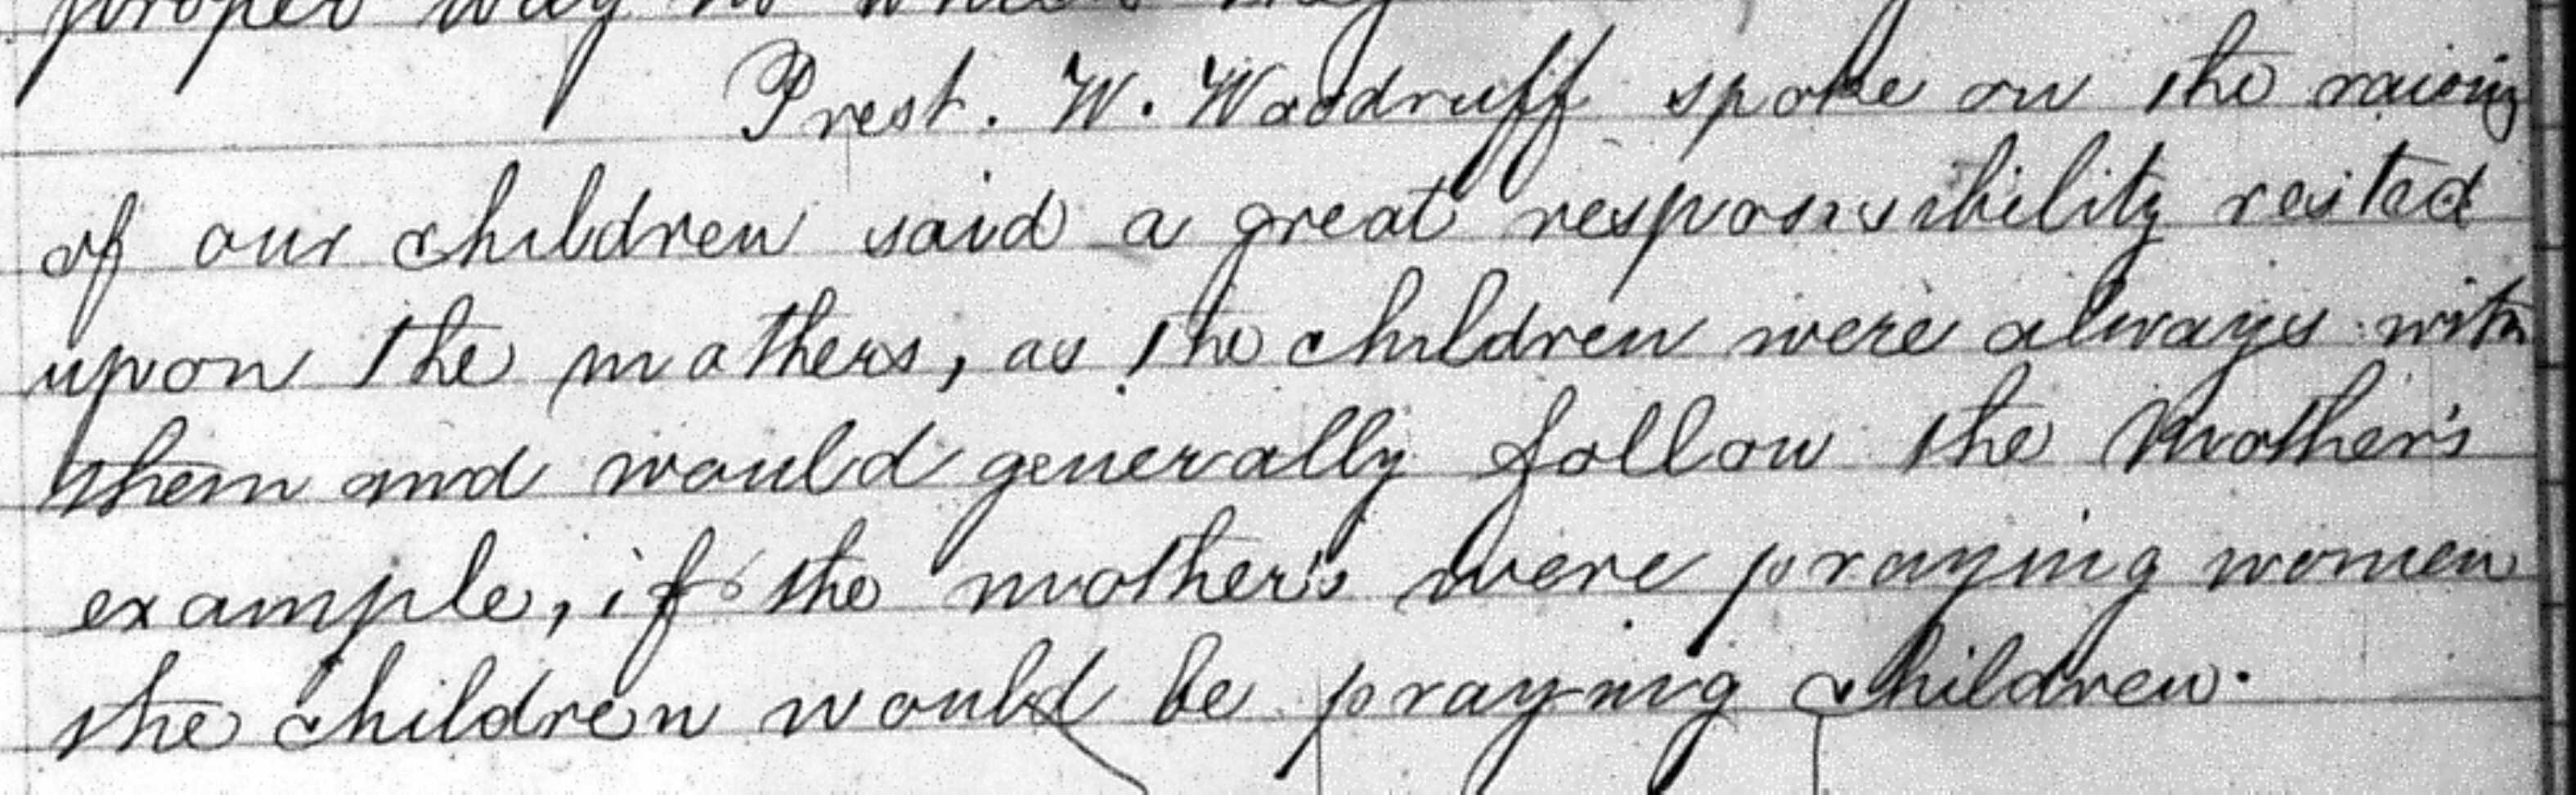 proper way
Prest. W. Woodruff spoke on the raising
of our children said a great responsibility rested
upon the mothers, as the children were always with
them and would generally follow the Mother's
example, if the mother's were praying women
the children would be praying children.